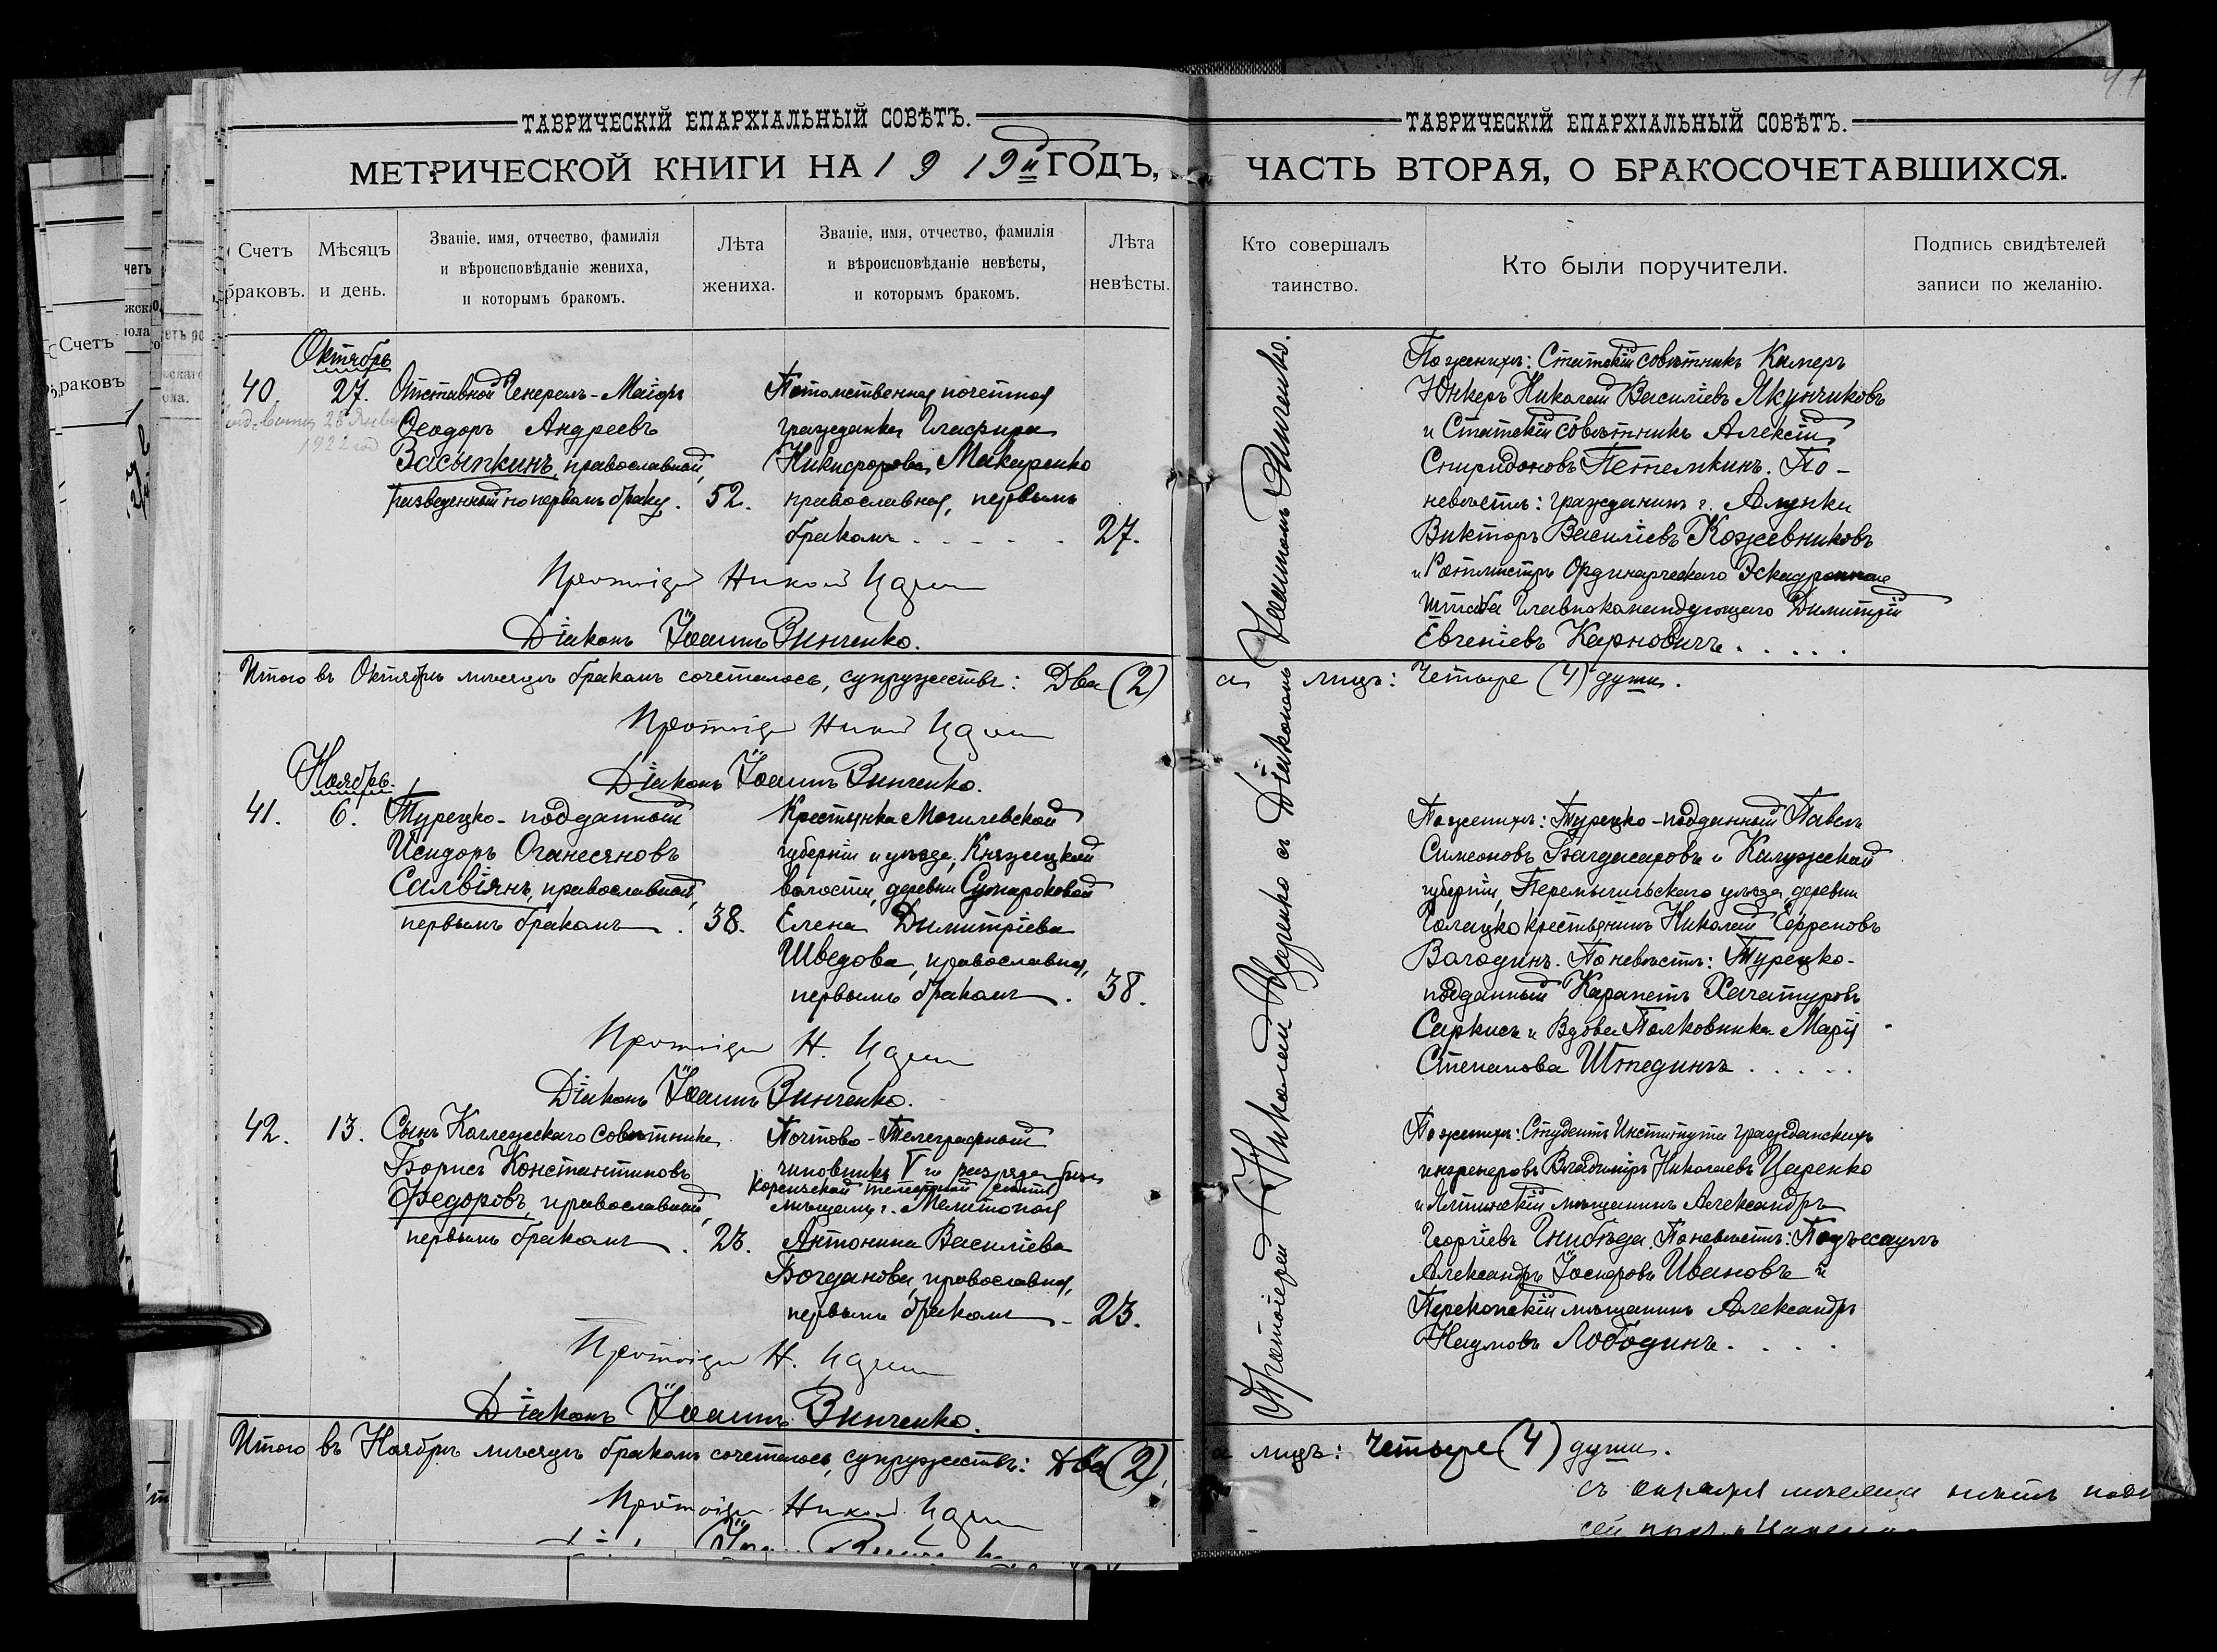 ТАВРИЧЕСКІЙ ЕПАРХІАЛЬНЫЙ СОВѢТЪ.
МЕТРИЧЕСКОЙ КНИГИ НА 1919й ГОДЪ,
Счетъ браковъ.
Мѣсяцъ и день.
Званіе, имя, отчество, фамилія
и вѣроисповѣданіе жениха,
и которымъ бракомъ.
Лѣта
жениха.
Званіе, имя, отчество, фамилія
и вѣроисповѣданіе невѣсты,
и которымъ бракомъ.
Лѣта
невѣсты.
Октябрь
40. 27.
28 Янва
1922 год
Отставной Генералъ-Маіоръ
Ѳеодоръ Андреевъ
Засыпкинъ, православный,
разведенный по первому браку. 52.
Потомственная почетная
гражданка Глафира
Никифорова Макаренко
православная, первымъ
бракомъ . . . . . 27.
Протоіерей Николай Царенко
Діаконъ Іоаннъ Винченко.
Итого въ Октябрѣ мѣсяцѣ бракомъ сочеталось, супружествъ: Два (2)
Протоіерей Николай Царенко
Діаконъ Іоаннъ Винченко.
Ноябрь.
41. 6.
Турецко-подданный
Исидоръ Оганесяновъ
Салвіянъ, православный,
первымъ бракомъ . 38.
Крестьянка Могилевской
губерніи и уѣзда, Княжицкой
волости, деревни Сумароковой
Елена Димитріева
Шведова, православная,
первымъ бракомъ . 38.
Протоіерей Н. Царенко
Діаконъ Іоаннъ Винченко.
42. 13.
Сынъ Коллежскаго Совѣтника
Борисъ Константиновъ
Ѳедоровъ, православный,
первымъ бракомъ . 23.
Почтово-Телеграфный
чиновникъ V го разряда
Кореизской
мѣщанка г. Мелитополя
Антонина Василіева
Богданова, православная,
первымъ бракомъ - 23.
Протоіерей Н. Царенко
Діаконъ Іоаннъ Винченко.
Итого въ Ноябрѣ мѣсяцѣ бракомъ сочеталось, супружествъ: Два (2),
Протоіерей Николай Царенко
ТАВРИЧЕСКІЙ ЕПАРХІАЛЬНЫЙ СОВѢТЪ.
ЧАСТЬ ВТОРАЯ, О БРАКОСОЧЕТАВШИХСЯ.
Кто совершалъ
таинство.
Кто были поручители.
Подпись свидѣтелей
записи по желанію.
Протоіерей Николай Царенко съ Діакономъ Іоанномъ Винченко.
По женихѣ: Статскій совѣтникъ Камеръ
Юнкеръ Николай Василіевъ Якунчиковъ
и Статскій совѣтникъ Алексій
Спиридоновъ Петелкинъ. По-
невѣстѣ: гражданинъ г. Алупки
Викторъ Василіевъ Кожевниковъ
и Ротмистръ Ординарческаго Эскадрона
Штаба Главнокомандующаго Димитрій
Евгеніевъ Карновичъ . . . . .
а лицъ: Четыре (4) души.
По женихѣ: Турецко-подданный Павелъ
Симеоновъ Багдасаровъ и Калужской
губерніи, Перемышльскаго уѣзда, деревни
крестьянинъ Николай
Володинъ. По невѣстѣ: Турецко-
подданный Карапетъ Хачатуровъ
Саркисъ и Вдова Полковника Марія
Степанова Штединъ . . . . .
По женихѣ: Студентъ Института гражданскихъ
инженеровъ Владиміръ Николаевъ Царенко
и Ялтинскій мѣщанинъ Александръ
Георгіевъ Гнибѣда. По невѣстѣ: Подъесаулъ
Александръ Іосифовъ Ивановъ и
Перекопскій мѣщанинъ Александръ
Наумовъ Лободинъ . . . .
а лицъ: Четыре (4) души.